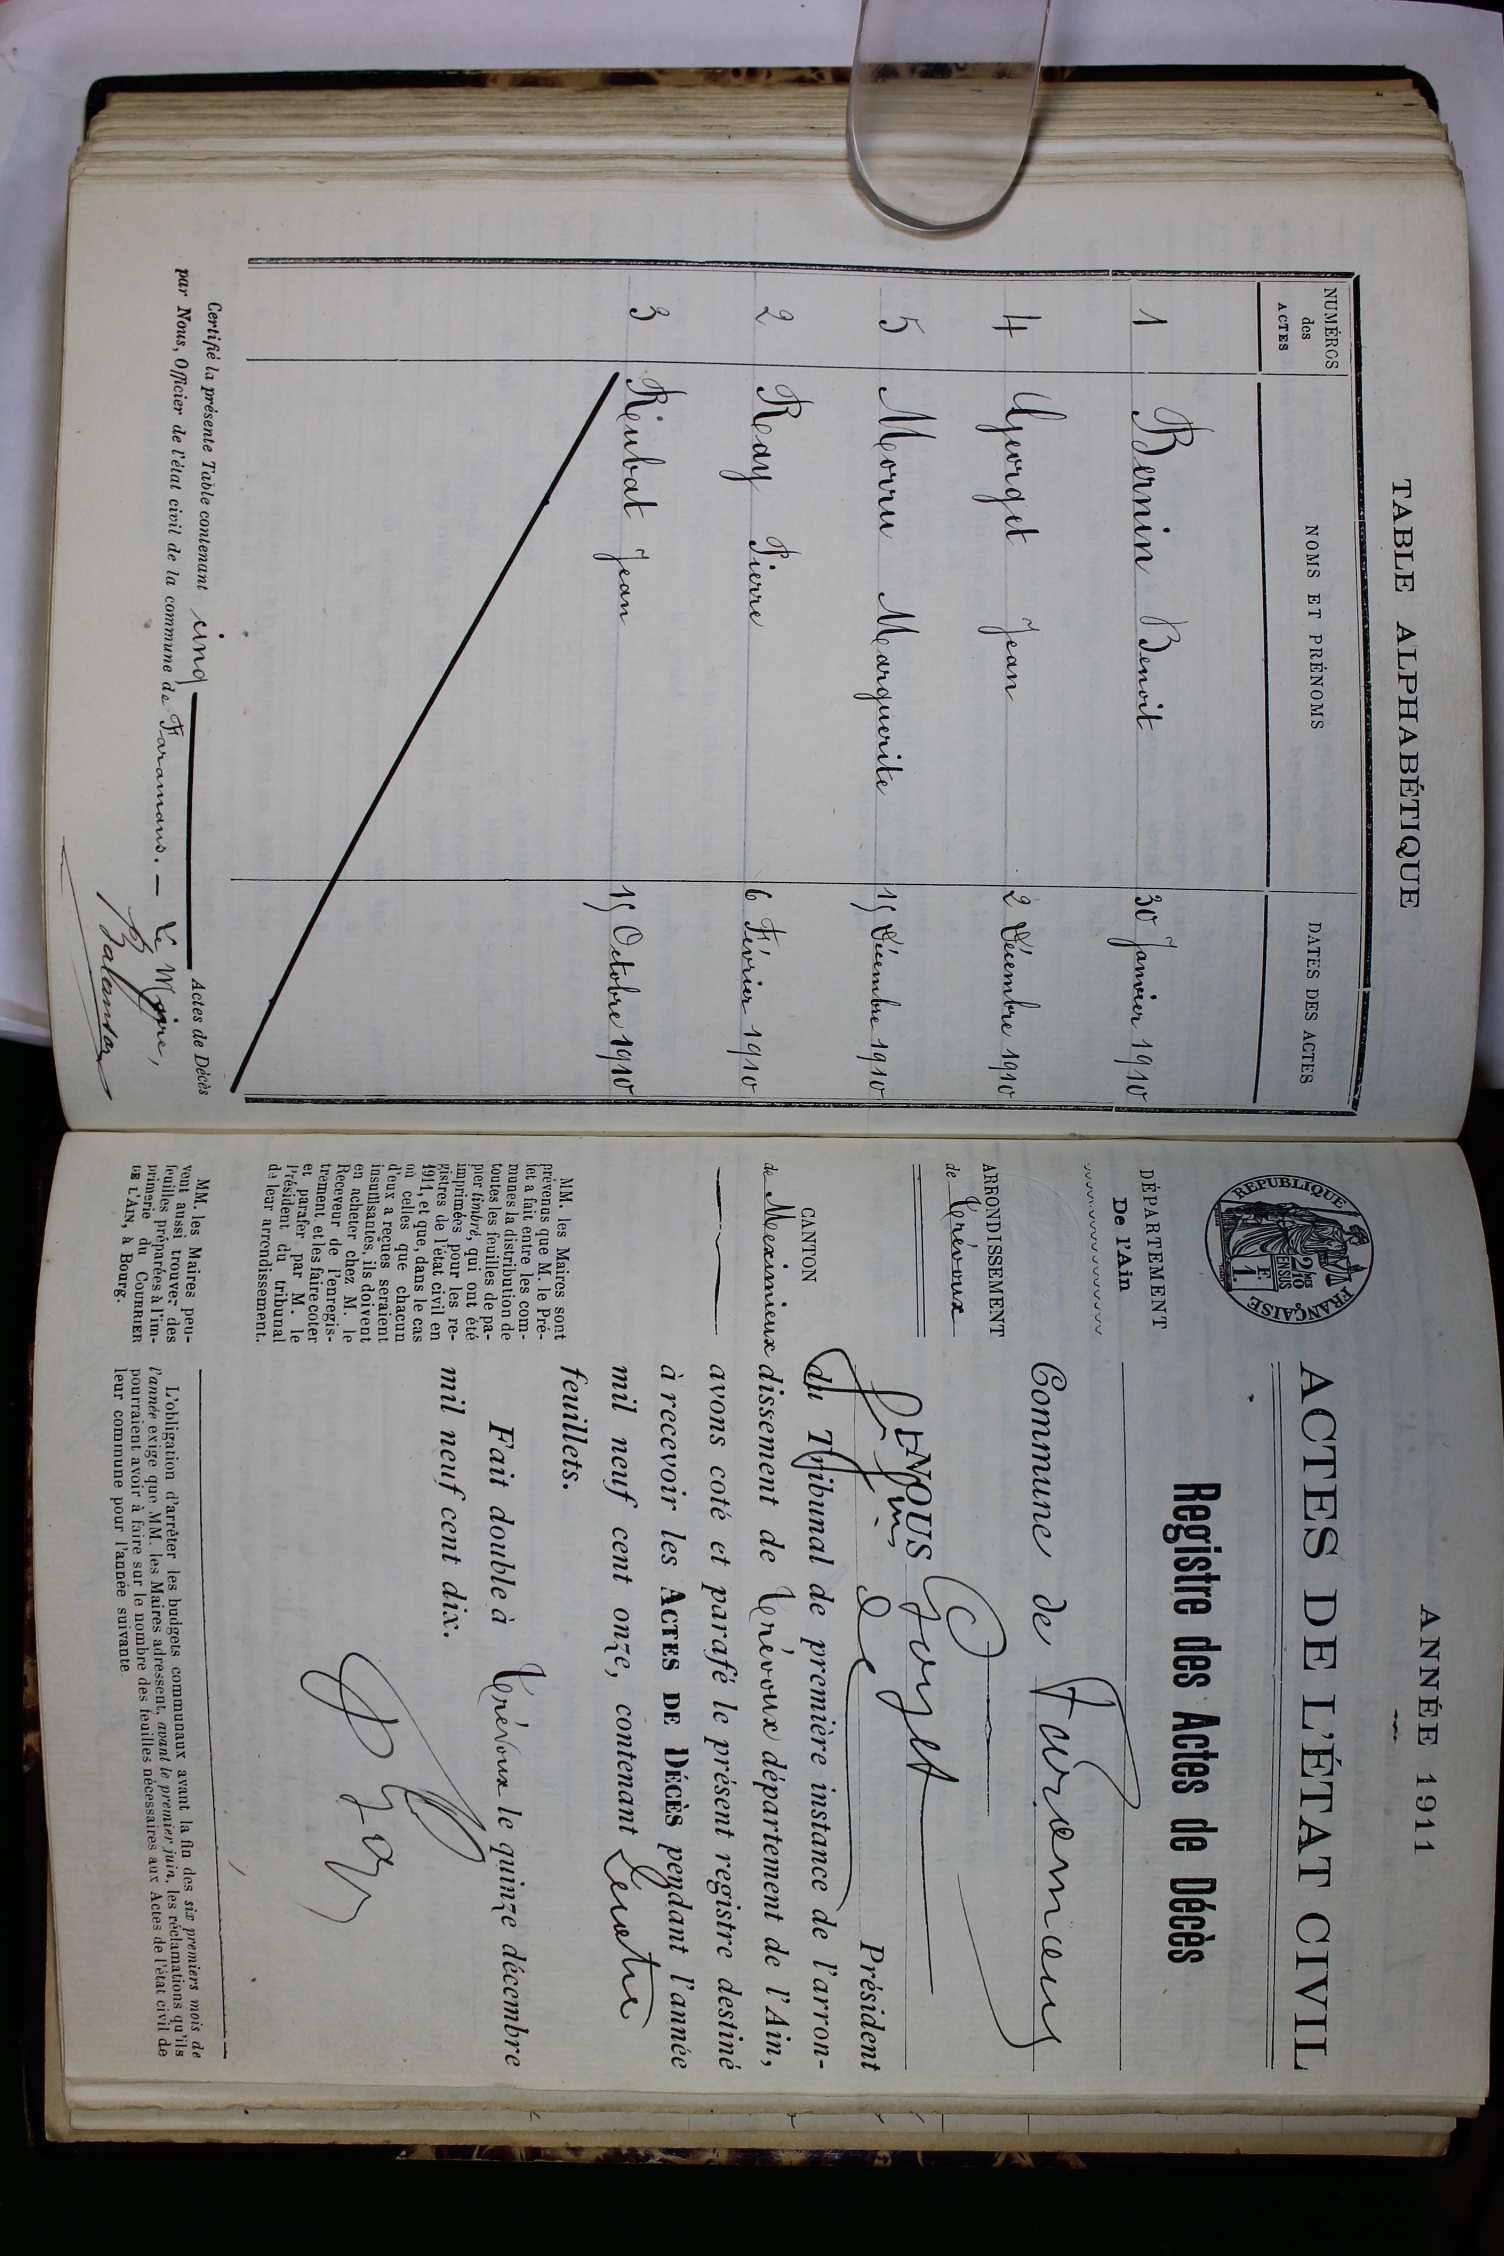 TABLE ALPHABÉTIQUE
NUMÉROS des ACTES
NOMS ET PRÉNOMS
DATES DES ACTES
1 Bernin Benoit 30 Janvier 1910
4 Georget Jean 2 Décembre 1910
5 Morru Marguerite 15 Décembre 1910
2 Reay Pierre 6 Février 1910
3 Reubat Jean 15 Octobre 1910
Certifié la présente Table contenant cinq Actes de Décès
par Nous, Officier de l'état civil de la commune de Faramans. — Le Maire,
ANNÉE 1911
ACTES DE L'ÉTAT CIVIL
Registre des Actes de Décès
REPUBLIQUE FRANÇAISE
2/10 EN SUS
1 F.
DÉPARTEMENT
De l'Ain
ARRONDISSEMENT
de Trévoux
CANTON
de Meximieux
MM. les Maires sont
prévenus que M. le Pré-
fet a fait entre les com-
munes la distribution de
toutes les feuilles de pa-
pier timbré, qui ont été
imprimées pour les re-
gistres de l'état civil en
1911, et que, dans le cas
où celles que chacun
d'eux a reçues seraient
insuffisantes, ils doivent
en acheter chez M. le
Receveur de l'enregis-
trement et les faire coter
et parafer par M. le
Président du tribunal
de leur arrondissement.
MM. les Maires peu-
vent aussi trouver des
feuilles préparées à l'im-
primerie du COURRIER
DE L'AIN, à Bourg.
Commune de Faramans
NOUS
Président
du Tribunal de première instance de l'arron-
dissement de Trévoux département de l'Ain,
avons coté et parafé le présent registre destiné
à recevoir les ACTES DE DÉCÈS pendant l'année
mil neuf cent onze, contenant
feuillets.
Fait double à Trévoux le quinze décembre
mil neuf cent dix.
L'obligation d'arrêter les budgets communaux avant la fin des six premiers mois de
l'année exige que MM. les Maires adressent, avant le premier juin, les réclamations qu'ils
pourraient avoir à faire sur le nombre des feuilles nécessaires aux Actes de l'état civil de
leur commune pour l'année suivante